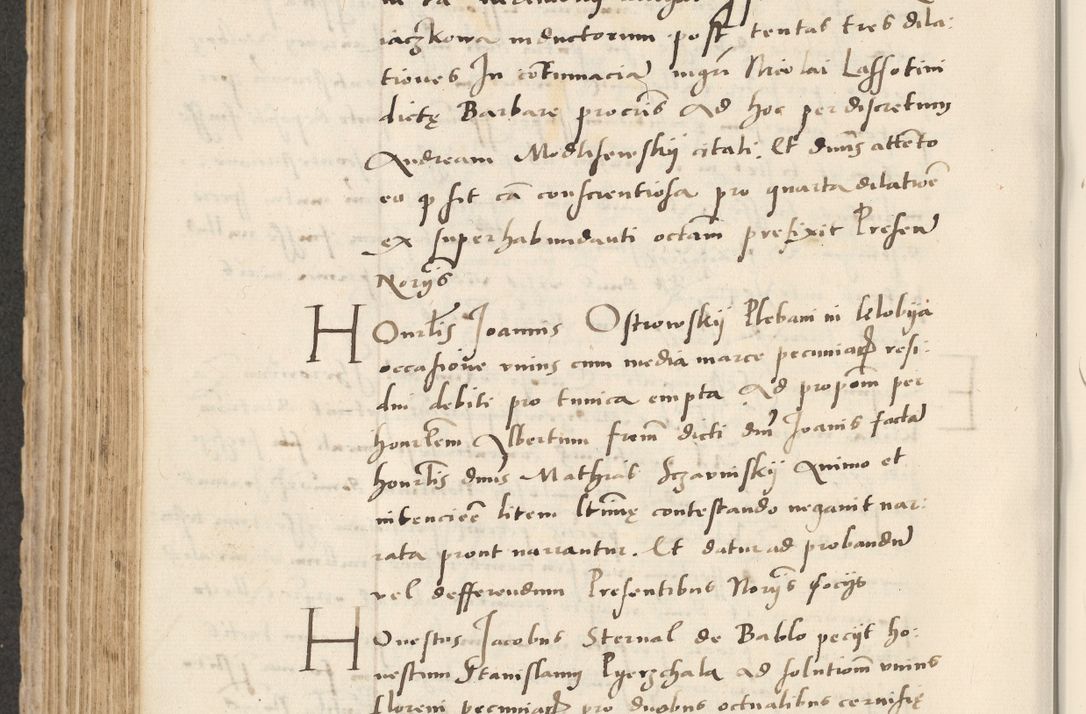 iaczkowa inductorum post tentas tres dila:
tiones In cotumacia mgri Nicolai Lassotini
dictę Barbare procris Ad hoc per discretum
Andream Modlisewskÿ citati. Et dnus attento
eo q sit ca conscientiosa pro quarta dilatioe
ex superhabundanti octam prefixit Presen
Norÿs
Honrlis Joannis Ostrowskÿ Plebani in Lelobÿa
occasione unius cum media marce pecuniar resi:
dui debiti pro tunica empta Ad propom per
honrlem Albertum frem dicti dni Joanis facta
honrlis dnus Mathias Sczavinskÿ Animo et
intencioe litem ltimę contestando negavit nar:
rata prout narrantur. Et datur ad probandu
vel defferendum Presentibus Norÿs socÿs
Honestus Jacobus Sternal de Bablo pecÿt ho:
nestum Stanislaum Pyerzchala ad solutiom unius
floreni pecuniar pro duobus octualibus cervisię